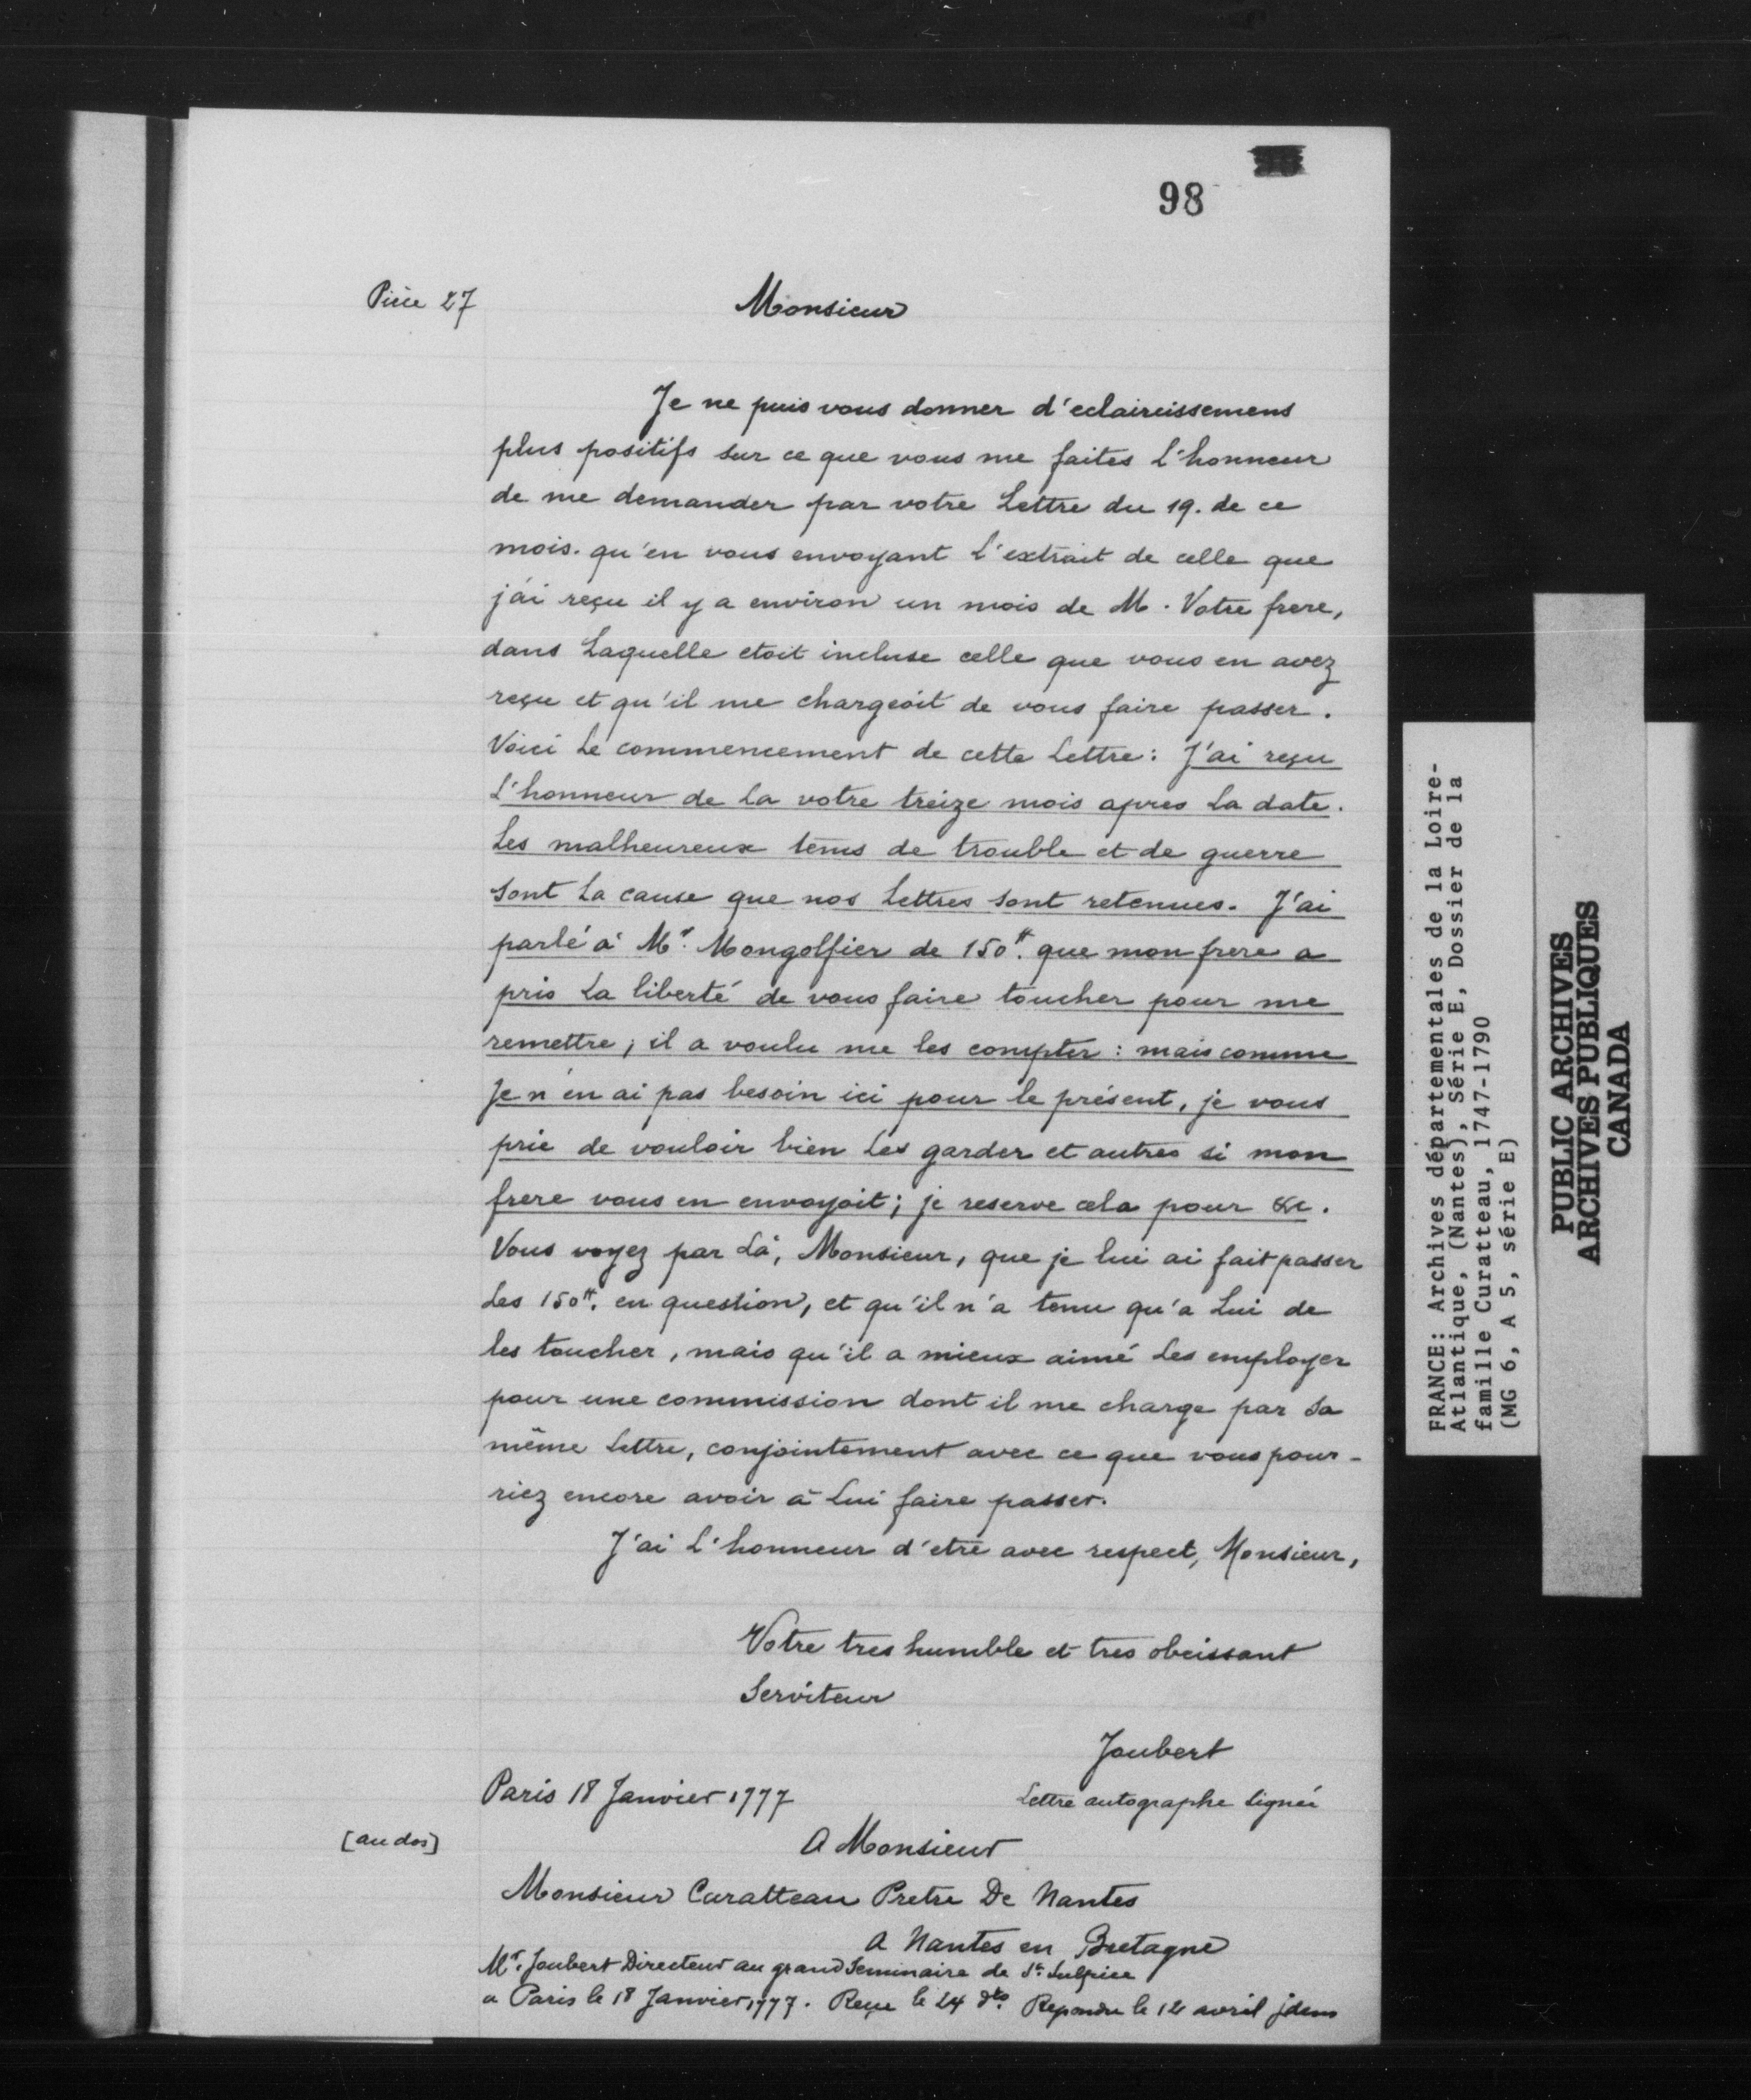 98
Pièce 27
Monsieur
Je ne puis vous donner d'eclaircissemens
plus positifs sur ce que vous me faites l'honneur
de me demander par votre Lettre du 19. de ce
mois. qu'en vous envoyant l'extrait de celle que
j'ai reçu il y a environ un mois de M. Votre frere,
dans Laquelle etoit incluse celle que vous en avez
reçu et qu'il me chargeoit de vous faire passer.
Voici Le commencement de cette Lettre: J'ai reçu
L'honneur de La votre treize mois apres La date.
Les malheureux tems de trouble et de guerre
sont La cause que nos Lettres sont retenues. J'ai
parlé à Mr. Mongolfier de 150tt. que mon frere a
pris La liberté de vous faire toucher pour me
remettre; il a voulu me les compter: mais comme
Je n'en ai pas besoin ici pour le présent, je vous
prie de vouloir bien Les garder et autres si mon
frere vous en envoyoit; je reserve cela pour &c.
Vous voyez par Là, Monsieur, que je lui ai fait passer
Les 150tt. en question, et qu'il n'a tenu qu'a Lui de
les toucher, mais qu'il a mieux aimé Les employer
pour une commission dont il me charge par Sa
même Lettre, conjointement avec ce que vous pour-
riez encore avoir à Lui faire passer.
J'ai L'honneur d'etre avec respect, Monsieur,
Votre tres humble et tres obeissant
Serviteur
Joubert
Paris 18 Janvier 1777
Lettre autographe signée
[au dos]
A Monsieur
Monsieur Curatteau Pretre De Nantes
A Nantes en Bretagne
Mr. Joubert Directeur au grand Seminaire de St. Sulpice
a Paris le 18 Janvier 1777. Reçue le 24 dto. Repondu le 12 avril jdem
FRANCE: Archives départementales de la Loire-
Atlantique, (Nantes), Série E, Dossier de la
famille Curatteau, 1747-1790
(MG 6, A 5, série E)
PUBLIC ARCHIVES
ARCHIVES PUBLIQUES
CANADA